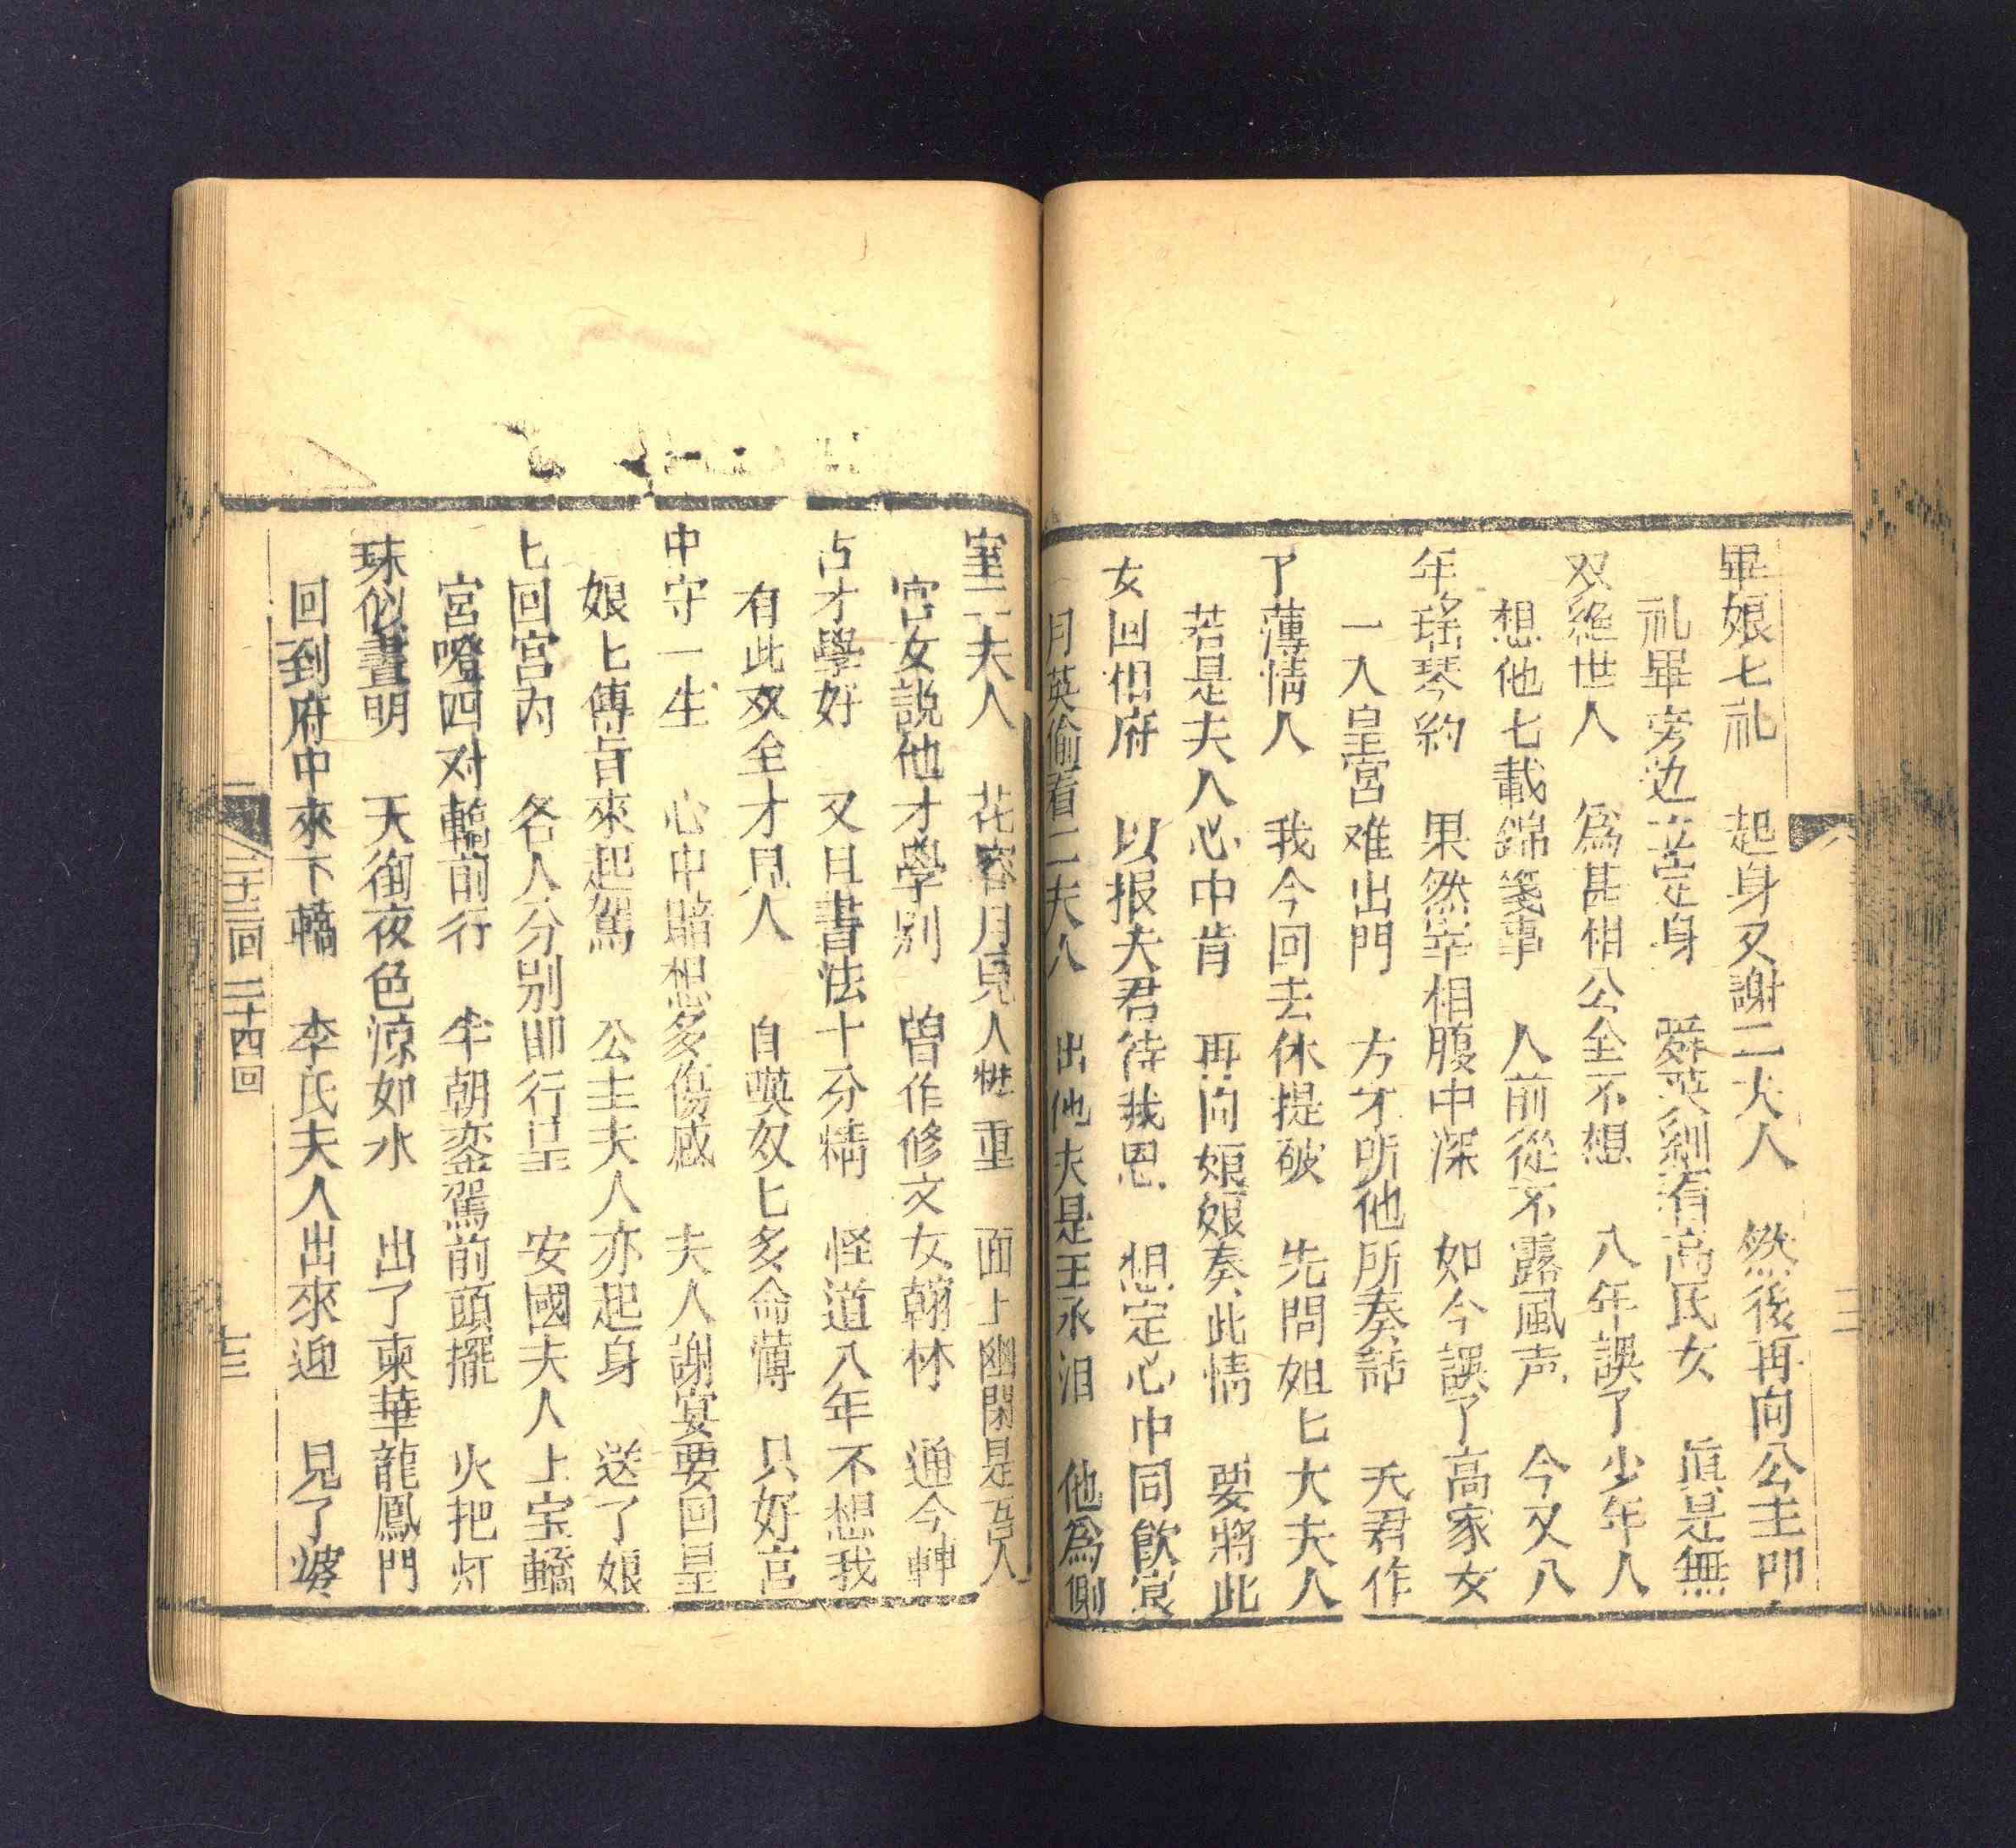 畢娘匕礼　起身又謝二夫人　然後再向公主叩
礼畢旁边立定身　舜英細看高氏女　真是無
双絶世人　為甚相公全不想　八年誤了少年人
想他七載錦箋事　人前從不露風声　今又八
年瑤琴約　果然宰相腹中深　如今誤了高家女
一入皇宮难出門　方才听他所奏話　夫君作
了薄情人　我今回去休提破　先問姐匕大夫人
若是夫人心中肯　再向娘娘奏此情　要將此
女回相府　以报夫君待我恩　想定心中同飲宴
月英偷看二夫人　出他夫是王丞相　他為側
室二夫人　花容月皃人世重　面上幽閑是吾人
宮女說他才學別　曽作修文女翰林　通今
占才學好　又且書法十分精　怪道八年不想我
有此双全才皃人　自嘆奴匕多命薄　只好宮
中守一生　心中暗想多傷感　夫人謝宴要回皇
娘匕傳旨來起駕　公主夫人亦起身　送了娘
匕回宮內　各人分別即行呈　安國夫人上宝轎
宮燈四对轎前行　半朝銮駕前頭擺　火把灯
珠似晝明　天街夜色凉如水　出了東華龍鳳門
回到府中來下轎　李氏夫人出來迎　見了婆
二十三回 二十四回
十三